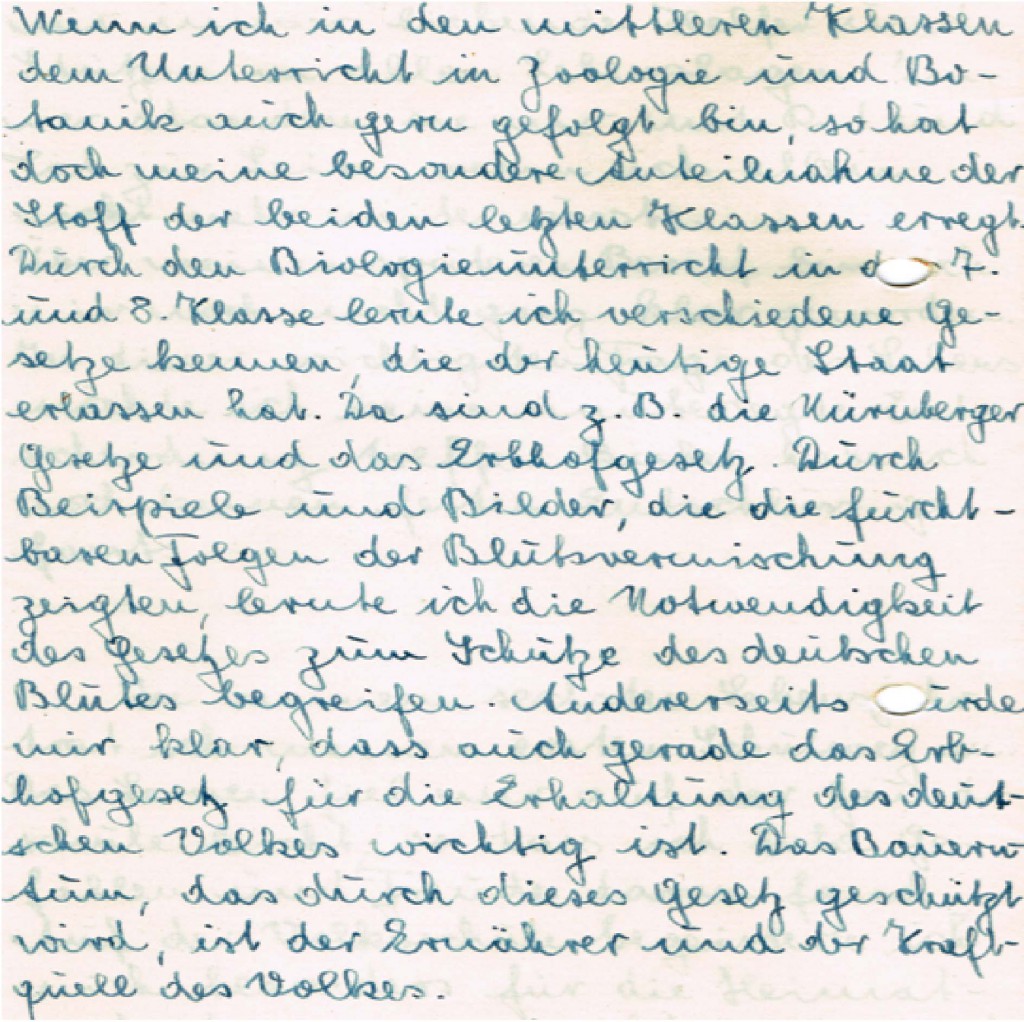 Wenn ich in den mittleren Klassen
dem Unterricht in Zoologie und Bo-
tanik auch gern gefolgt bin, so hat
doch meine besondere Anteilnahme der
Stoff der beiden letzten Klassen erregt.
Durch den Biologieunterricht in d 7.
und 8. Klasse lernte ich verschiedene Ge-
setze kennen, die der heutige Staat
erlassen hat. Da sind z. B. die Nürnberger
Gesetze und das Erbhofgesetz. Durch
Beispiele und Bilder, die die furcht-
baren Folgen der Blutsvermischung
zeigten, lernte ich die Notwendigkeit
des Gesetzes zum Schutze des deutschen
Blutes begreifen. Andererseits urde
mir klar, dass auch gerade das Erb-
hofgesetz für die Erhaltung des deut-
schen Volkes wichtig ist. Das Bauern-
tum, das durch dieses Gesetz geschützt
wird, ist der Ernährer und der Kraft-
quell des Volkes.